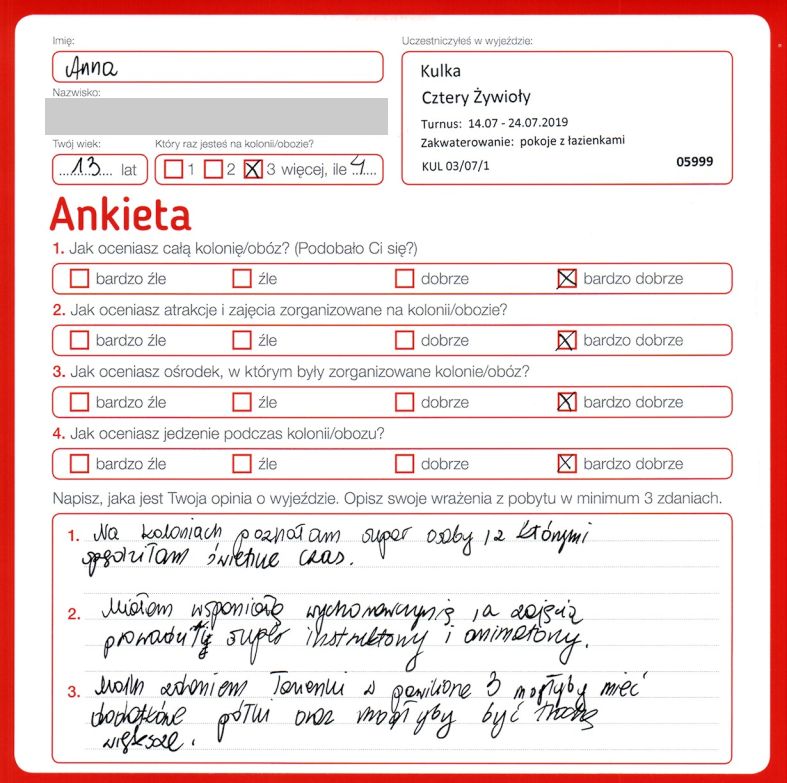 Imię:
Anna
Nazwisko:
Twój wiek:
13 lat
Który raz jesteś na kolonii/obozie?
1 2 3 więcej, ile 4
Uczestniczyłeś w wyjeździe:
Kulka
Cztery Żywioły
Turnus: 14.07 - 24.07.2019
Zakwaterowanie: pokoje z łazienkami
KUL 03/07/1 05999
Ankieta
1. Jak oceniasz całą kolonię/obóz? (Podobało Ci się?)
bardzo źle źle dobrze bardzo dobrze
2. Jak oceniasz atrakcje i zajęcia zorganizowane na kolonii/obozie?
bardzo źle źle dobrze bardzo dobrze
3. Jak oceniasz ośrodek, w którym były zorganizowane kolonie/obóz?
bardzo źle źle dobrze bardzo dobrze
4. Jak oceniasz jedzenie podczas kolonii/obozu?
bardzo źle źle dobrze bardzo dobrze
Napisz, jaka jest Twoja opinia o wyjeździe. Opisz swoje wrażenia z pobytu w minimum 3 zdaniach.
1. Na koloniach poznałam super osoby , z którymi
spędziłam świetnie czas.
2. Miałam wspaniałą wychowawczynię , a zajęcia
prowadziły super instruktorzy i animatorzy.
3. Moim zdaniem łazienki w pawilonie 3 mogłyby mieć
dodatkowe półki oraz mogłyby być trochę
większe.